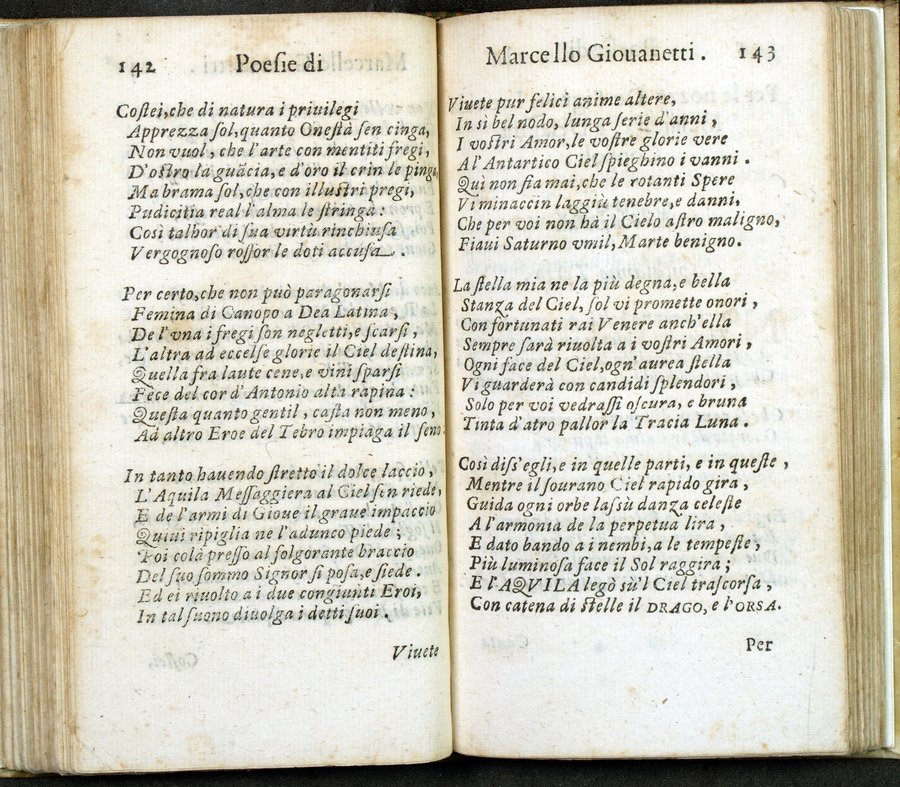 142 Poeſie di
Coſtei,che di natura i priuilegi
Apprezza ſol,quanto Oneſtà ſen cinga,
Non vuol, che l'arte con mentiti fregi,
D'oſtro la guācia, e d'oro il crin le pinga
Ma brama ſol,che con illuſtri pregi,
Pudicitia real l'alma le ſtringa.
Così talhor di ſua virtù rinchiuſa
Vergognoſo roſſor le doti accuſa.
Per certo,che non può paragonarſi
Femina di Canopo a Dea Latina.
De l'vna i fregi ſon negletti,e ſcarſi,
L'altra ad eccelſe glorie il Ciel deſtina,
Quella fra laute cene,e vini ſparſi
Fece del cor d'Antonio alta rapina.
Queſta quanto gentil, caſta non meno,
Ad altro Eroe del Tebro impiaga il ſeno
In tanto hauendo ſtretto il dolce laccio,
L'Aquila Meſſaggiera al Ciel ſen riede,
E de l'armi di Gioue il graue impaccio
Quiui ripiglia ne l'adunco piede;
Poi colà preſſo al folgorante braccio
Del ſuo ſommo Signor ſi poſa,e ſiede.
Ed ei riuolto a i due congiunti Eroi,
In tal ſuono diuolga i detti ſuoi.
Viuete
Marcello Giouanetti. 143
Viuete pur felici anime altere,
In sì bel nodo, lunga ſerie d'anni,
I voſtri Amor,le voſtre glorie vere
A l'Antartico Ciel ſpieghino i vanni.
Qui non ſia mai,che le rotanti Spere
Vi minaccin laggiù tenebre,e danni,
Che per voi non hà il Cielo aſtro maligno,
Fiaui Saturno vmil,Marte benigno.
La ſtella mia ne la più degna,e bella
Stanza del Ciel, ſol vi promette onori,
Con fortunati rai Venere anch'ella
Sempre ſarà riuolta a i voſtri Amori,
Ogni face del Ciel,ogn'aurea ſtella
Vi guarderà con candidi ſplendori,
Solo per voi vedraſſi oſcura, e bruna
Tinta d'atro pallor la Tracia Luna.
Così diſs'egli,e in quelle parti, e in queſte,
Mentre il ſourano Ciel rapido gira,
Guida ogni orbe laſsù danza celeſte
A l'armonia de la perpetua lira,
E dato bando a i nembi,a le tempeſte,
Più luminoſa face il Sol raggira;
E l'AQVILA legò sù'l Ciel traſcorſa,
Con catena di ſtelle il DRAGO, e l'ORSA.
Per